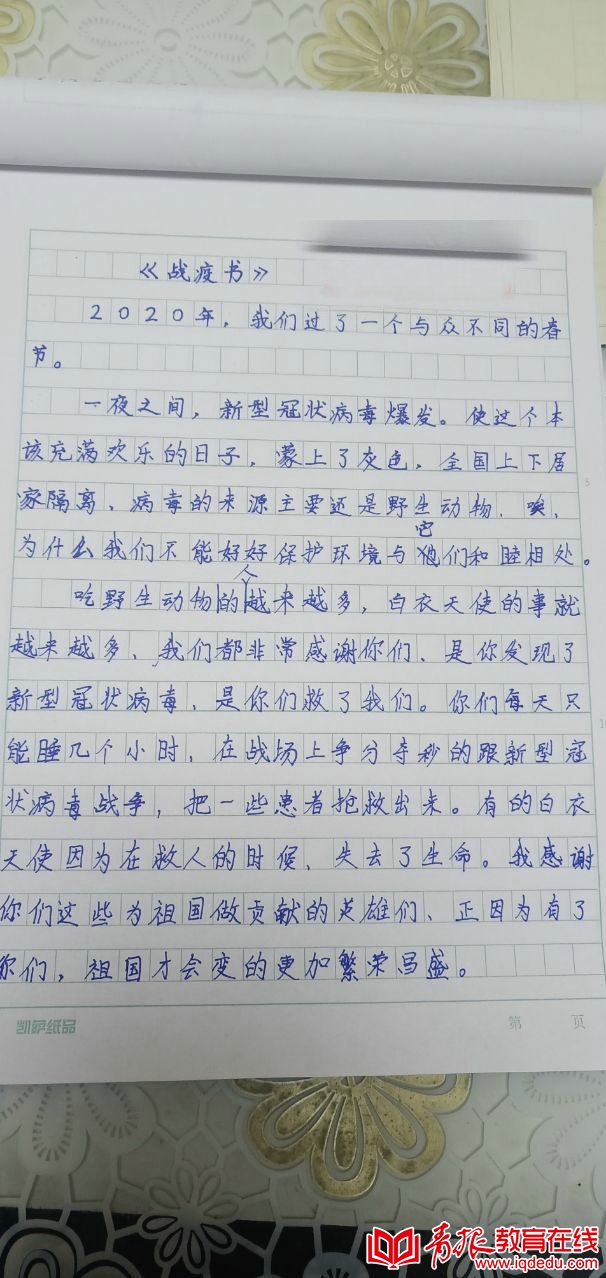 《战疫书》
2020年，我们过了一个与众不同的春
节。
一夜之间，新型冠状病毒爆发。使这个本
该充满欢乐的日子，蒙上了灰色，全国上下居
家隔离、病毒的来源主要还是野生动物，唉，
为什么我们不能好好保护环境与它们和睦相处。
吃野生动物的人越来越多，白衣天使的事就
越来越多、我们都非常感谢你们，是你发现了
新型冠状病毒，是你们救了我们。你们每天只
能睡几个小时，在战场上争分夺秒的跟新型冠
状病毒战争，把一些患者抢救出来。有的白衣
天使因为在救人的时候，失去了生命。我感谢
你们这些为祖国做贡献的英雄们、正因为有了
你们，祖国才会变的更加繁荣昌盛。
凯萨纸品
第 页
青报教育在线
www.iqdedu.com